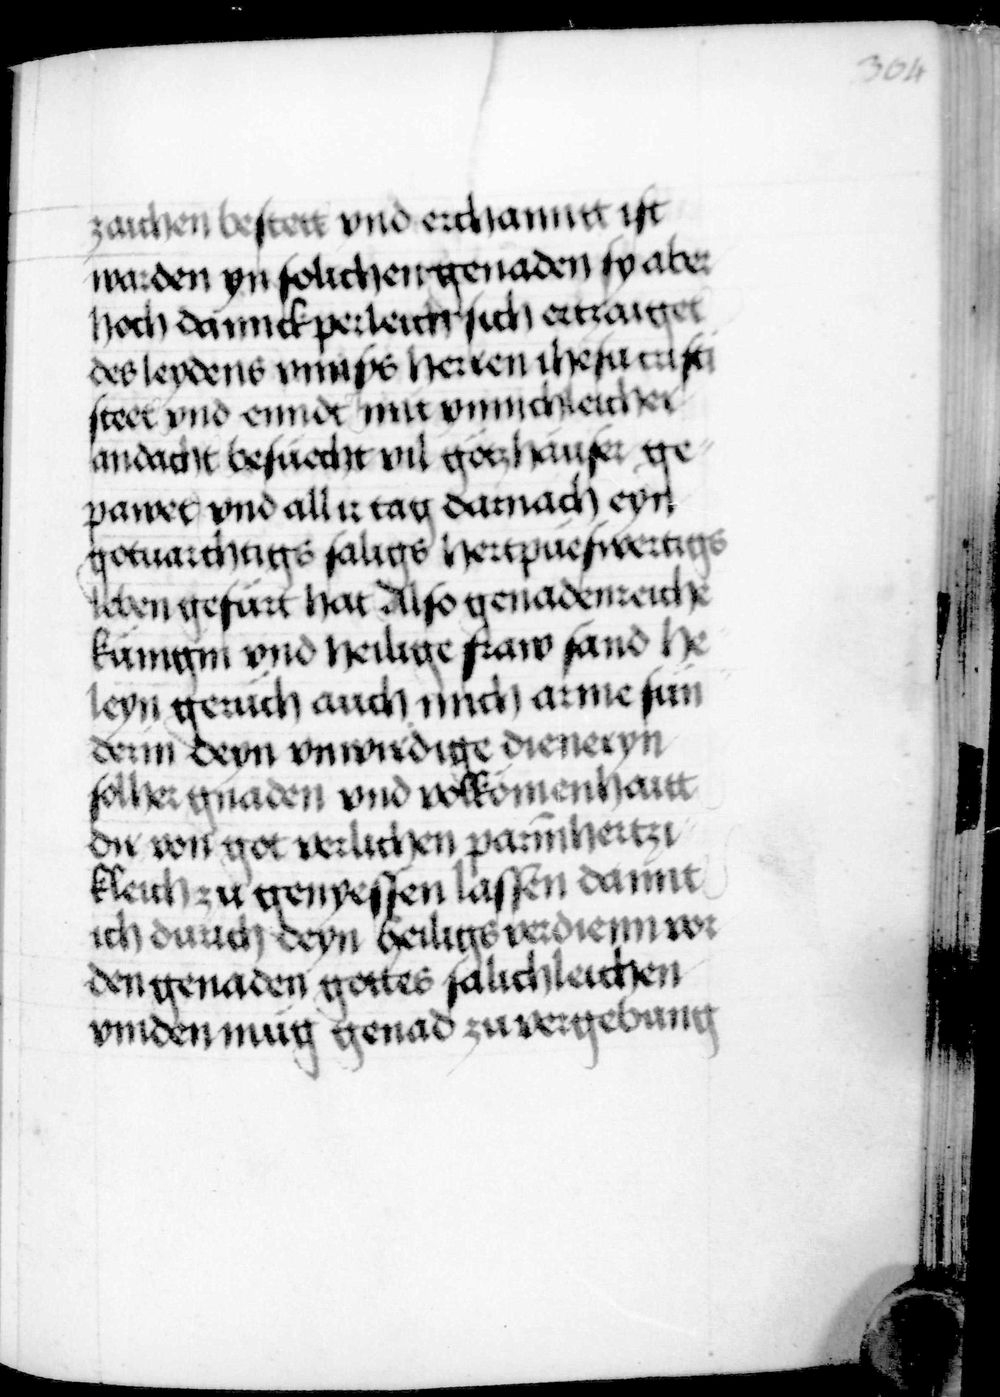 304
zaichen bestett vnd erchanntt ist
warden yn solichen genaden sy aber
hoch dannckperleich sich ertzaiget
des leydens vnnsers herren ihesu cristi
steet vnd enndt mit ynnichleicher
andacht besuecht vil gotzhäuser ge-
pawet vnd all ir tag darnach eyn
gotuarchtigs saligs hertpueswertigs
leben gefürt hat Also genadenreiche
künigin vnd heilige fraw sand he-
leyn geruch auch mich arme sün
derin deyn vnwirdige dieneryn
solher gnaden vnd volkömenhaitt
dir von got verlichen parmhertzi
kleich zu genyessen lassen damit
ich durich deyn heiligs verdienn vor
den genaden gottes salichleichen
vinden müg genad zu vergebung